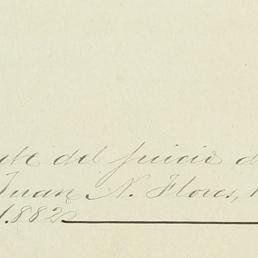 del juicio d
Juan N. Flores,
1882